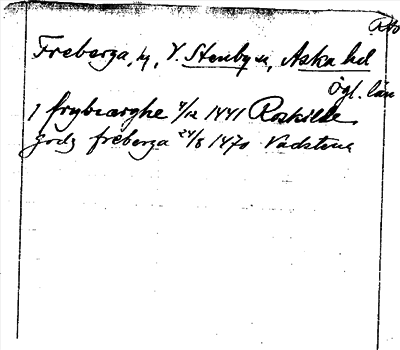 Freberga, by, V. Stenby sn, Aska hd
Ögl. län
j frybiærghe 4/12 1441 Roskilde
godz freberga 24/8 1470 Vadstena